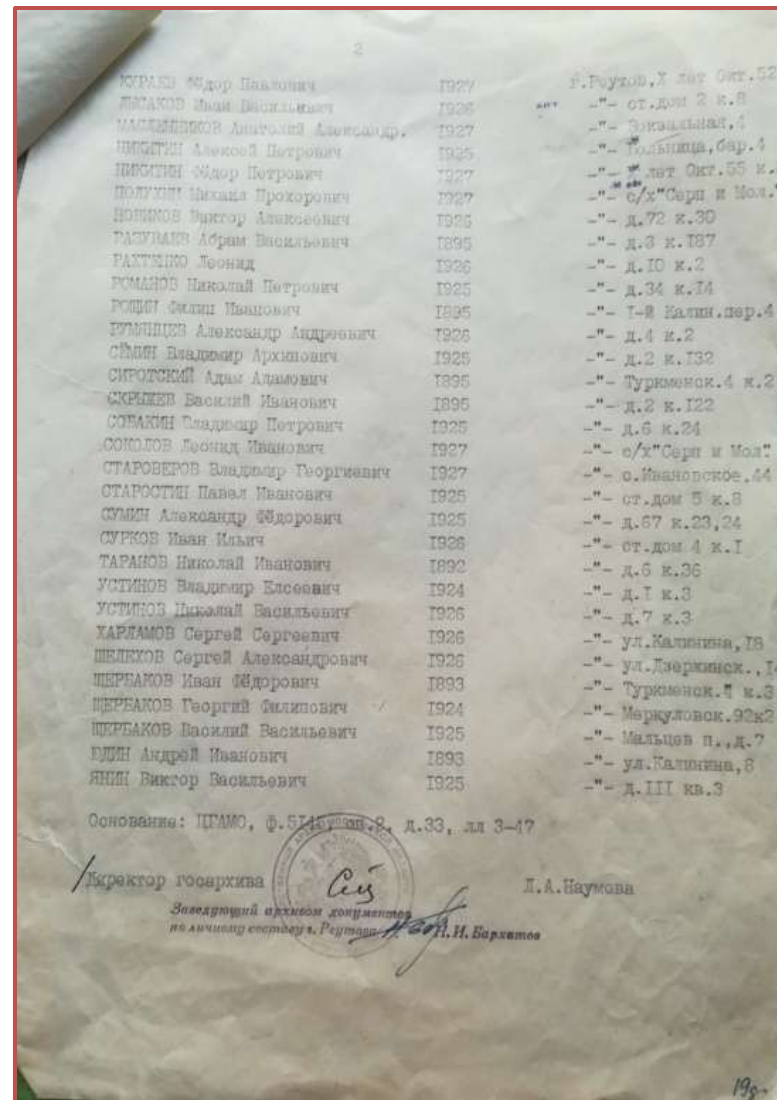 2
КУРАЕВ Фёдор Павлович 1927 г.Реутов,X лет Окт.52
ЛЫСАКОВ Иван Васильевич 1926 -"- ст.дом 2 к.8
МАСЛЕННИКОВ Анатолий Александр. 1927 -"- Вокзальная,4
НИКИТИН Алексей Петрович 1925 -"- Больница,бар.4
НИКИТИН Фёдор Петрович 1927 -"- X лет Окт.55 к.
ПОЛУХИН Михаил Прохорович 1927 -"- с/х"Серп и Мол."
НОВИКОВ Виктор Алексеевич 1926 -"- д.72 к.30
РАЗУВАЕВ Абрам Васильевич 1895 -"- д.3 к.187
РАХТЕНКО Леонид 1926 -"- д.10 к.2
РОМАНОВ Николай Петрович 1925 -"- д.34 к.14
РОЩИН Филип Иванович 1895 -"- I-й Калин.пер.4
РУМЯНЦЕВ Александр Андреевич 1926 -"- д.4 к.2
СЁМИН Владимир Архипович 1925 -"- д.2 к.132
СИРОТСКИЙ Адам Адамович 1895 -"- Туркменск.4 к.2
СКРЫЖЕВ Василий Иванович 1895 -"- д.2 к.122
СОБАКИН Владимир Петрович 1925 -"- д.6 к.24
СОКОЛОВ Леонид Иванович 1927 -"- с/х"Серп и Мол".
СТАРОВЕРОВ Владимир Георгиевич 1927 -"- с.Ивановское,44
СТАРОСТИН Павел Иванович 1925 -"- ст.дом 5 к.8
СУМИН Александр Фёдорович 1925 -"- д.67 к.23,24
СУРКОВ Иван Ильич 1926 -"- ст.дом 4 к.I
ТАРАНОВ Николай Иванович 1892 -"- д.6 к.36
УСТИНОВ Владимир Елсеевич 1924 -"- д.I к.3
УСТИНОВ Николай Васильевич 1926 -"- д.7 к.3
ХАРЛАМОВ Сергей Сергеевич 1926 -"- ул.Калинина,18
ШЕЛЕХОВ Сергей Александрович 1926 -"- ул.Дзержинск.,14
ЩЕРБАКОВ Иван Фёдорович 1893 -"- Туркменск. к.3
ЩЕРБАКОВ Георгий Филипович 1924 -"- Меркуловск.92к2
ЩЕРБАКОВ Василий Васильевич 1925 -"- Мальцев п.,д.7
ЮДИН Андрей Иванович 1893 -"- ул.Калинина,8
ЯНИН Виктор Васильевич 1925 -"- д.III кв.3
Основание: ЦГАМО, ф.5145, оп.2, д.33, лл 3-47
Директор госархива Л.А.Наумова
Заведующий архивом документов
по личному составу г. Реутова Н.И. Бархатов